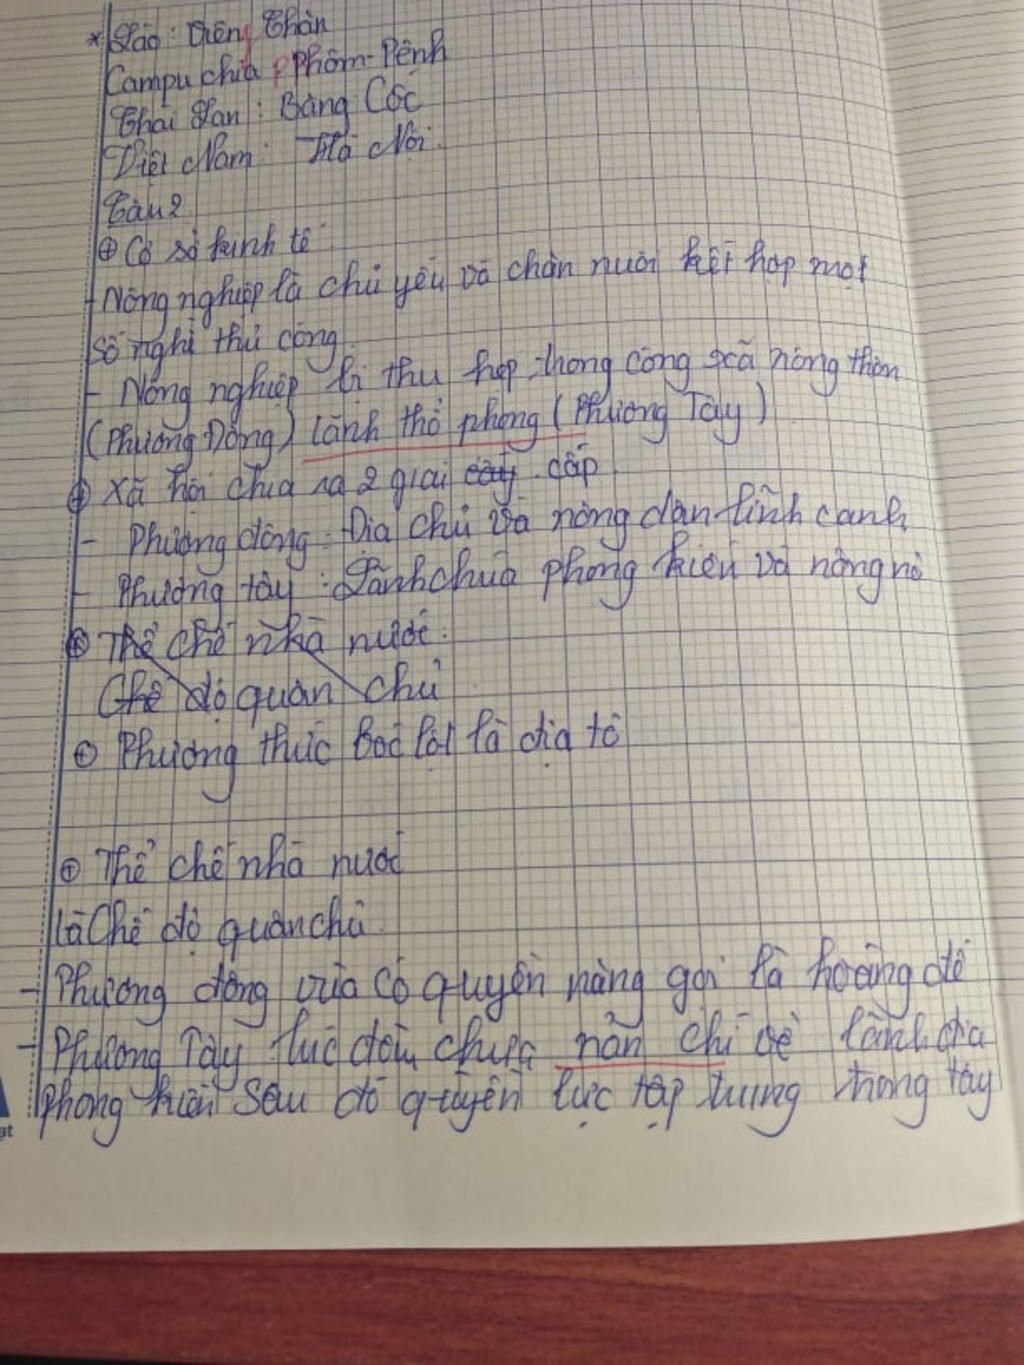 * Lào : Viêng Chăn
Campuchia Phôm-Pênh
Thái Lan : Băng Cốc
Việt Nam : Hà Nội.
Câu 2
+ Cơ sở kinh tế
- Nông nghiệp là chủ yếu và chăn nuôi kết hợp một
số nghề thủ công.
- Nông nghiệp bị thu hẹp trong công xã nông thôn
(Phương Đông) lãnh thổ phong (Phương Tây)
+ Xã hội chia ra 2 giai cấp.
- Phương đông : Địa chủ và nông dân lĩnh canh
- Phương tây : Lãnh chúa phong kiến và nông nô
+ Thể chế nhà nước :
Chế độ quân chủ.
+ Phương thức bóc lột là địa tô
+ Thể chế nhà nước
là Chế độ quân chủ.
- Phương đông vua có quyền năng gọi là hoàng đế
- Phương Tây lúc đầu chưa nản chí để lãnh địa
phong kiến sau đó quyền lực tập trung trong tay
ạt